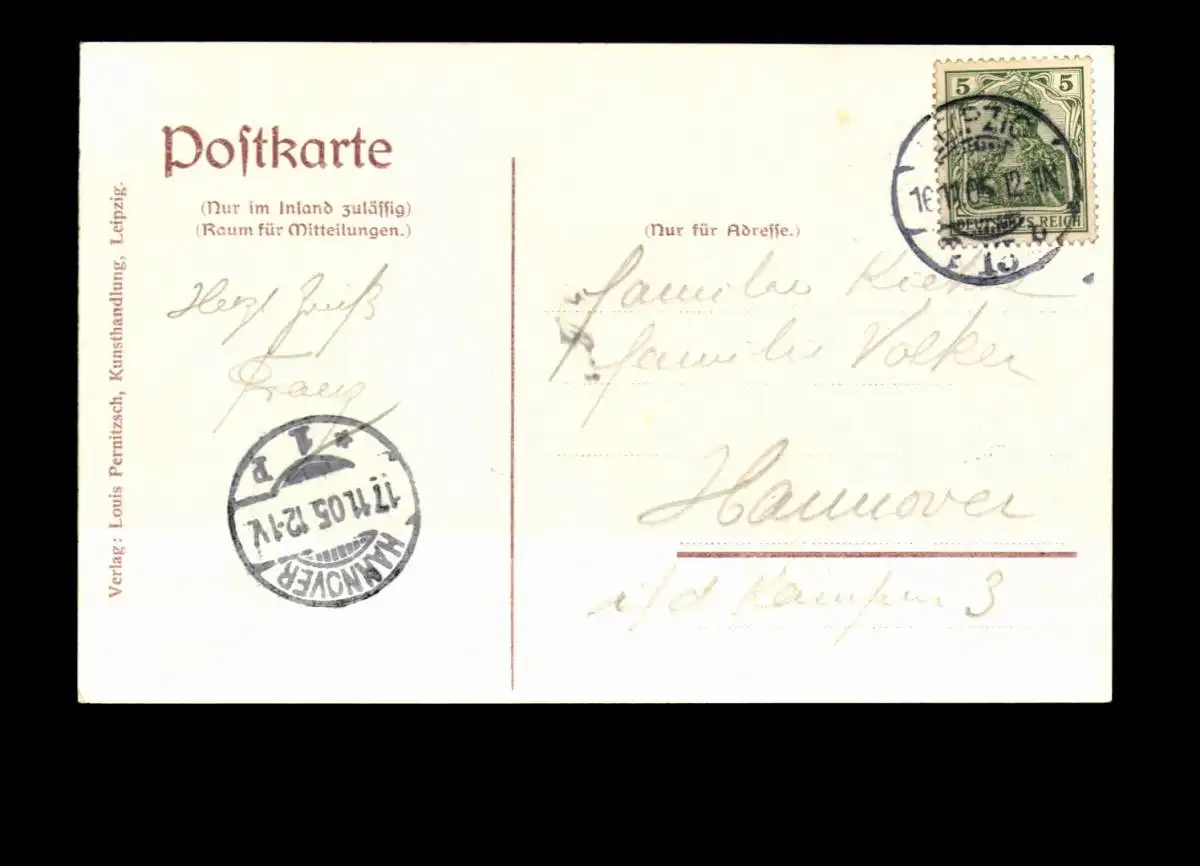 Postkarte
(Nur im Inland zulässig)
(Raum für Mitteilungen.)
Herzl Gruß
Franz
Verlag: Louis Pernitzsch, Kunsthandlung, Leipzig.
* 1 P
17.11.05. 12-1V.
HANNOVER
5 5
DEUTSCHES REICH
LEIPZIG
16.11.05. 12-1N
13
(Nur für Adresse.)
Familie
Familie Volker
Hannover
i/d Kämpen 3